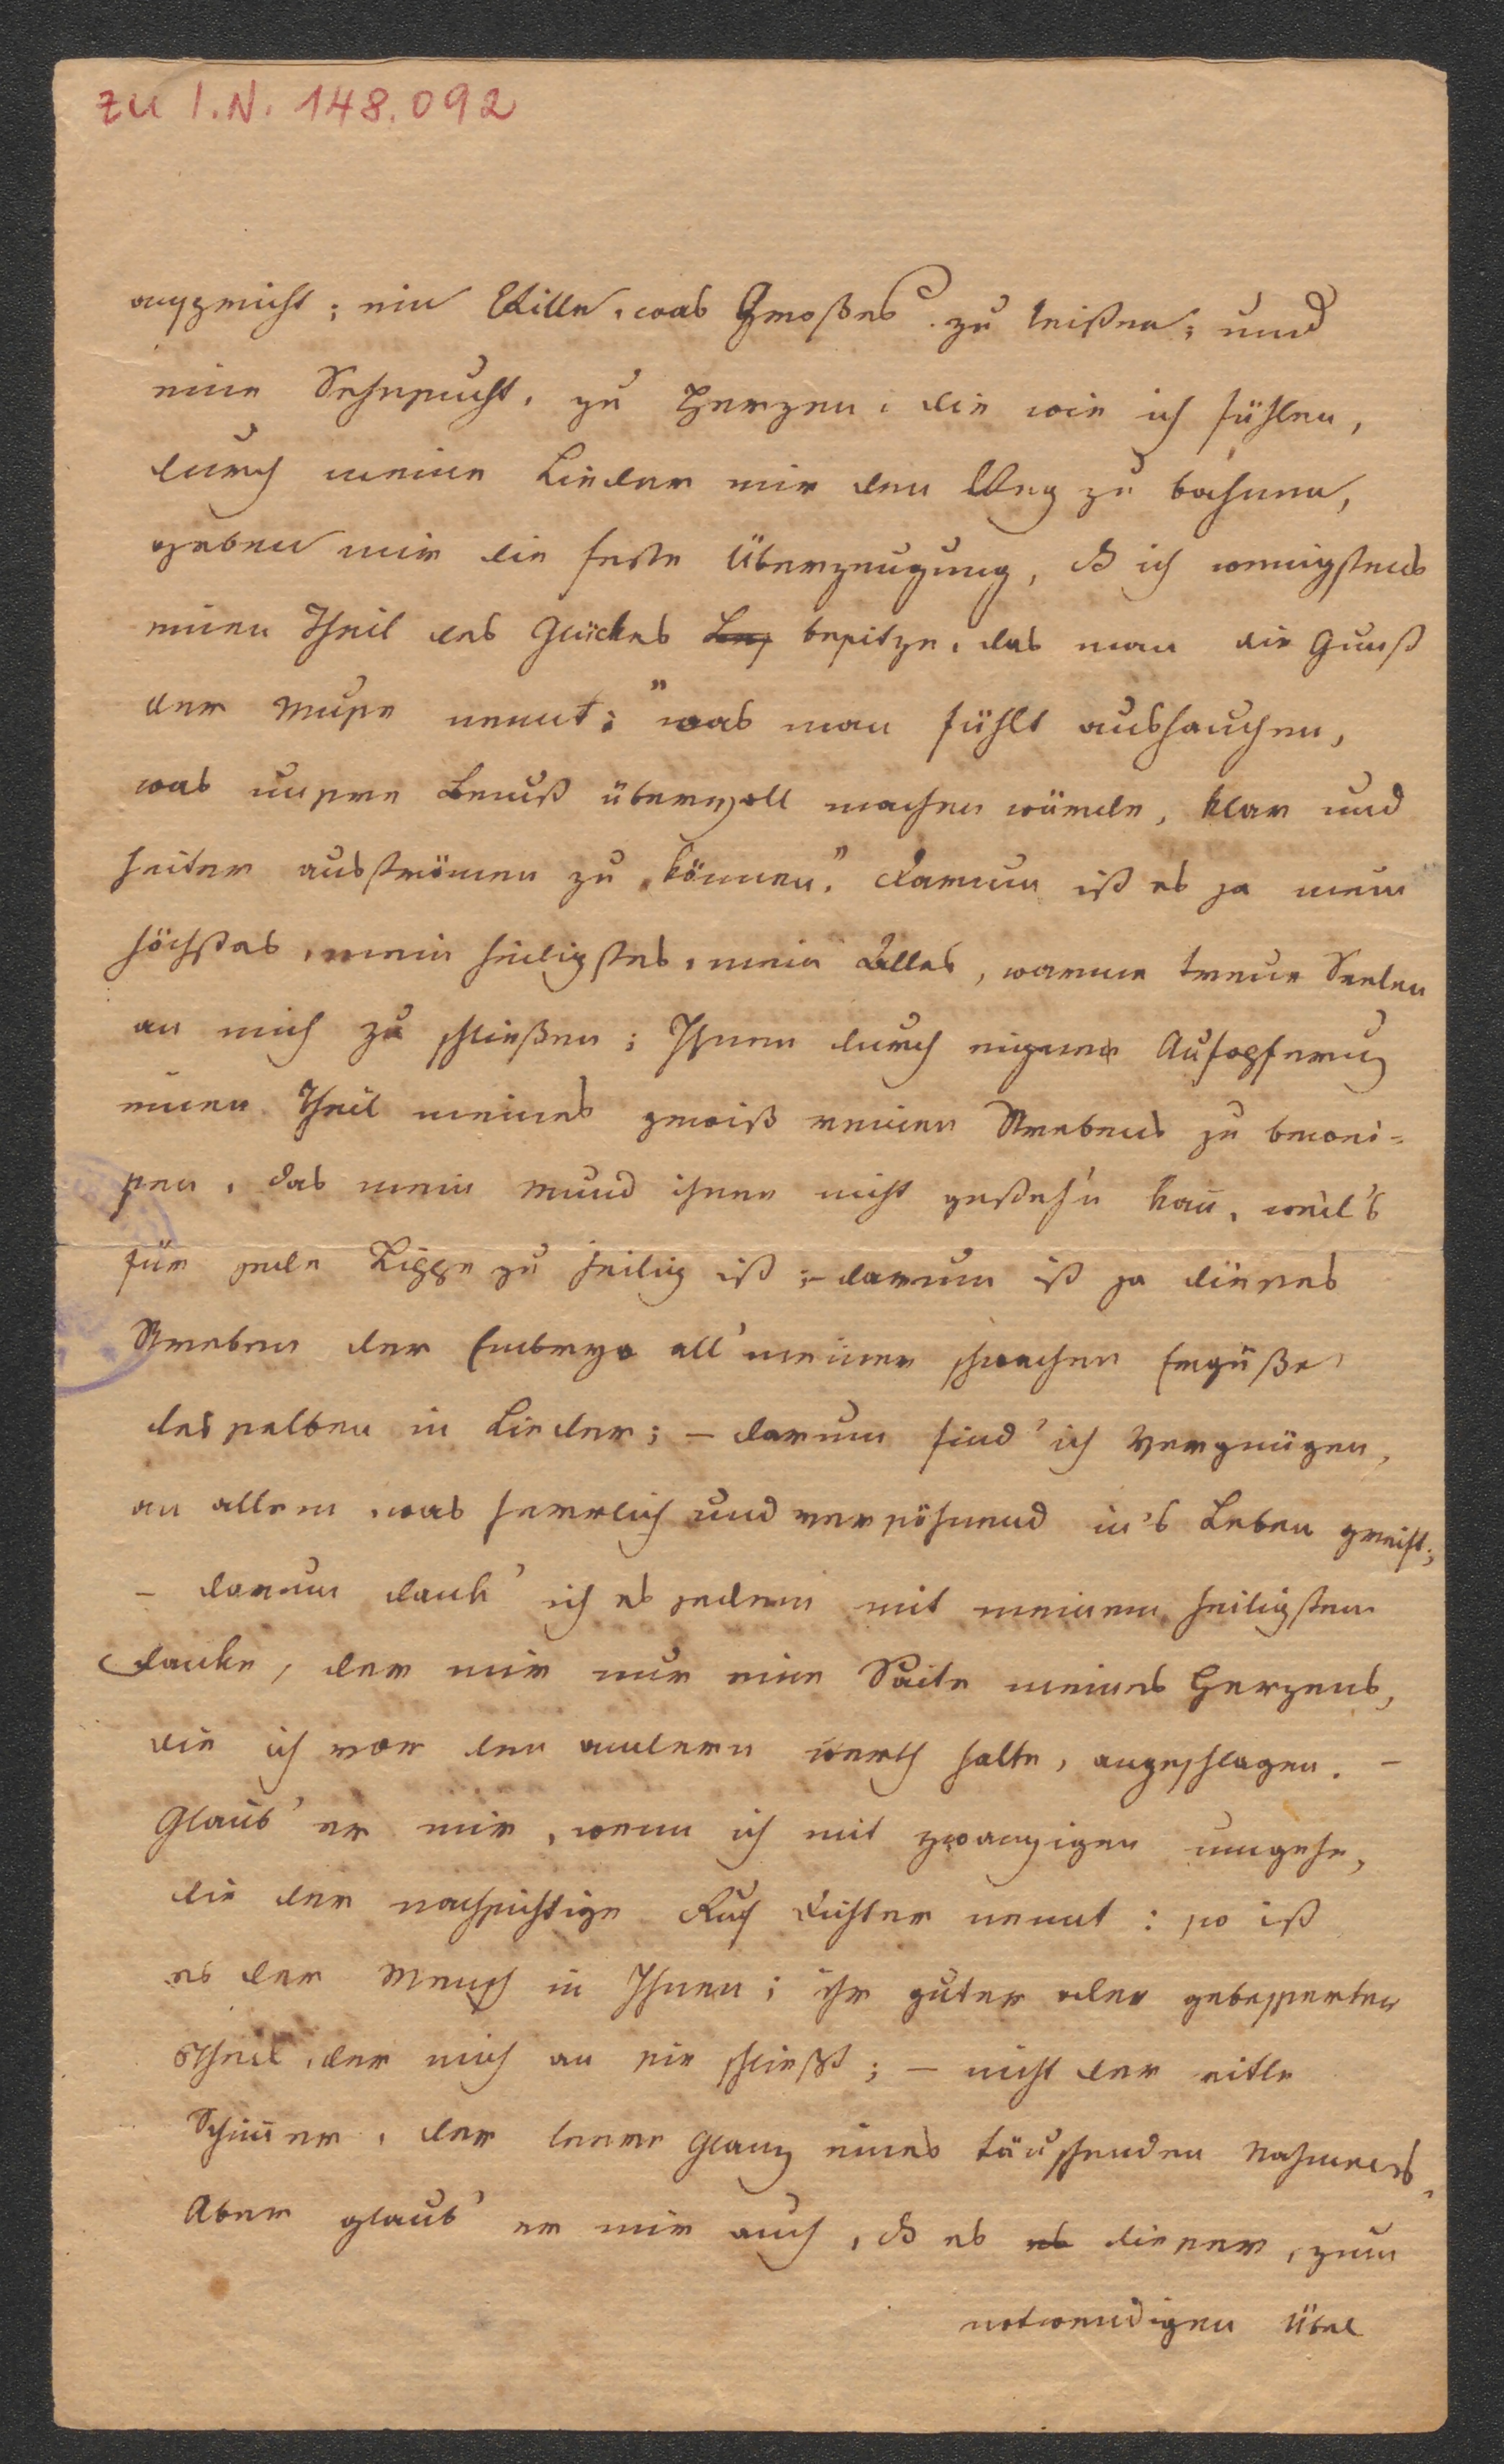 zu I.N. 148.092
angereicht; ein Wille, was Großes zu leisten; und
eine Sehnsucht, zu Herzen, die wie ich fühlen,
durch meine Lieder mir den Weg zu bahnen,
geben mir die feste Überzeugung, dß ich wenigstens
einen Theil des Glückes besitze, das man die Gunst
der Muse nennt; "was man fühlt aushauchen,
was unsre Brust übervoll machen würde, klar und
heiter ausströmen zu können." Darum ist es ja mein
höchstes, mein heiligstes, mein Alles, warme treue Seelen
an mich zu schließen; Ihnen durch eigene Aufopferung
einen Theil meines gewiß reinen Strebens zu bewei-
sen, das mein Mund ihnen nicht gesteh'n kan̄, weil's
für jede Lippe zu heilig ist; – darum ist ja dieses
Streben der Embryo all' meiner schwachen Ergüße
desselben in Lieder; – darum find' ich Vergnügen,
an allem, was herrlich und versöhnend in's Leben greift;
– darum dank' ich es jedem mit meinem heiligsten
Danke, der mir nur eine Saite meines Herzens,
die ich vor den andern werth halte, angeschlagen. –
Glaub' er mir, wenn ich mit zwanzigen umgehe,
die der nachsichtige Ruf Dichter nennt: so ist
es der Mensch in Ihnen; ihr guter oder gebesserter
Theil, der mich an sie schließt; – nicht der eitle
Schim̄er, der leere Glanz eines täuschenden Nahmens.
Aber glaub' er mir auch, dß es es dieser, zum
notwendigen Übel